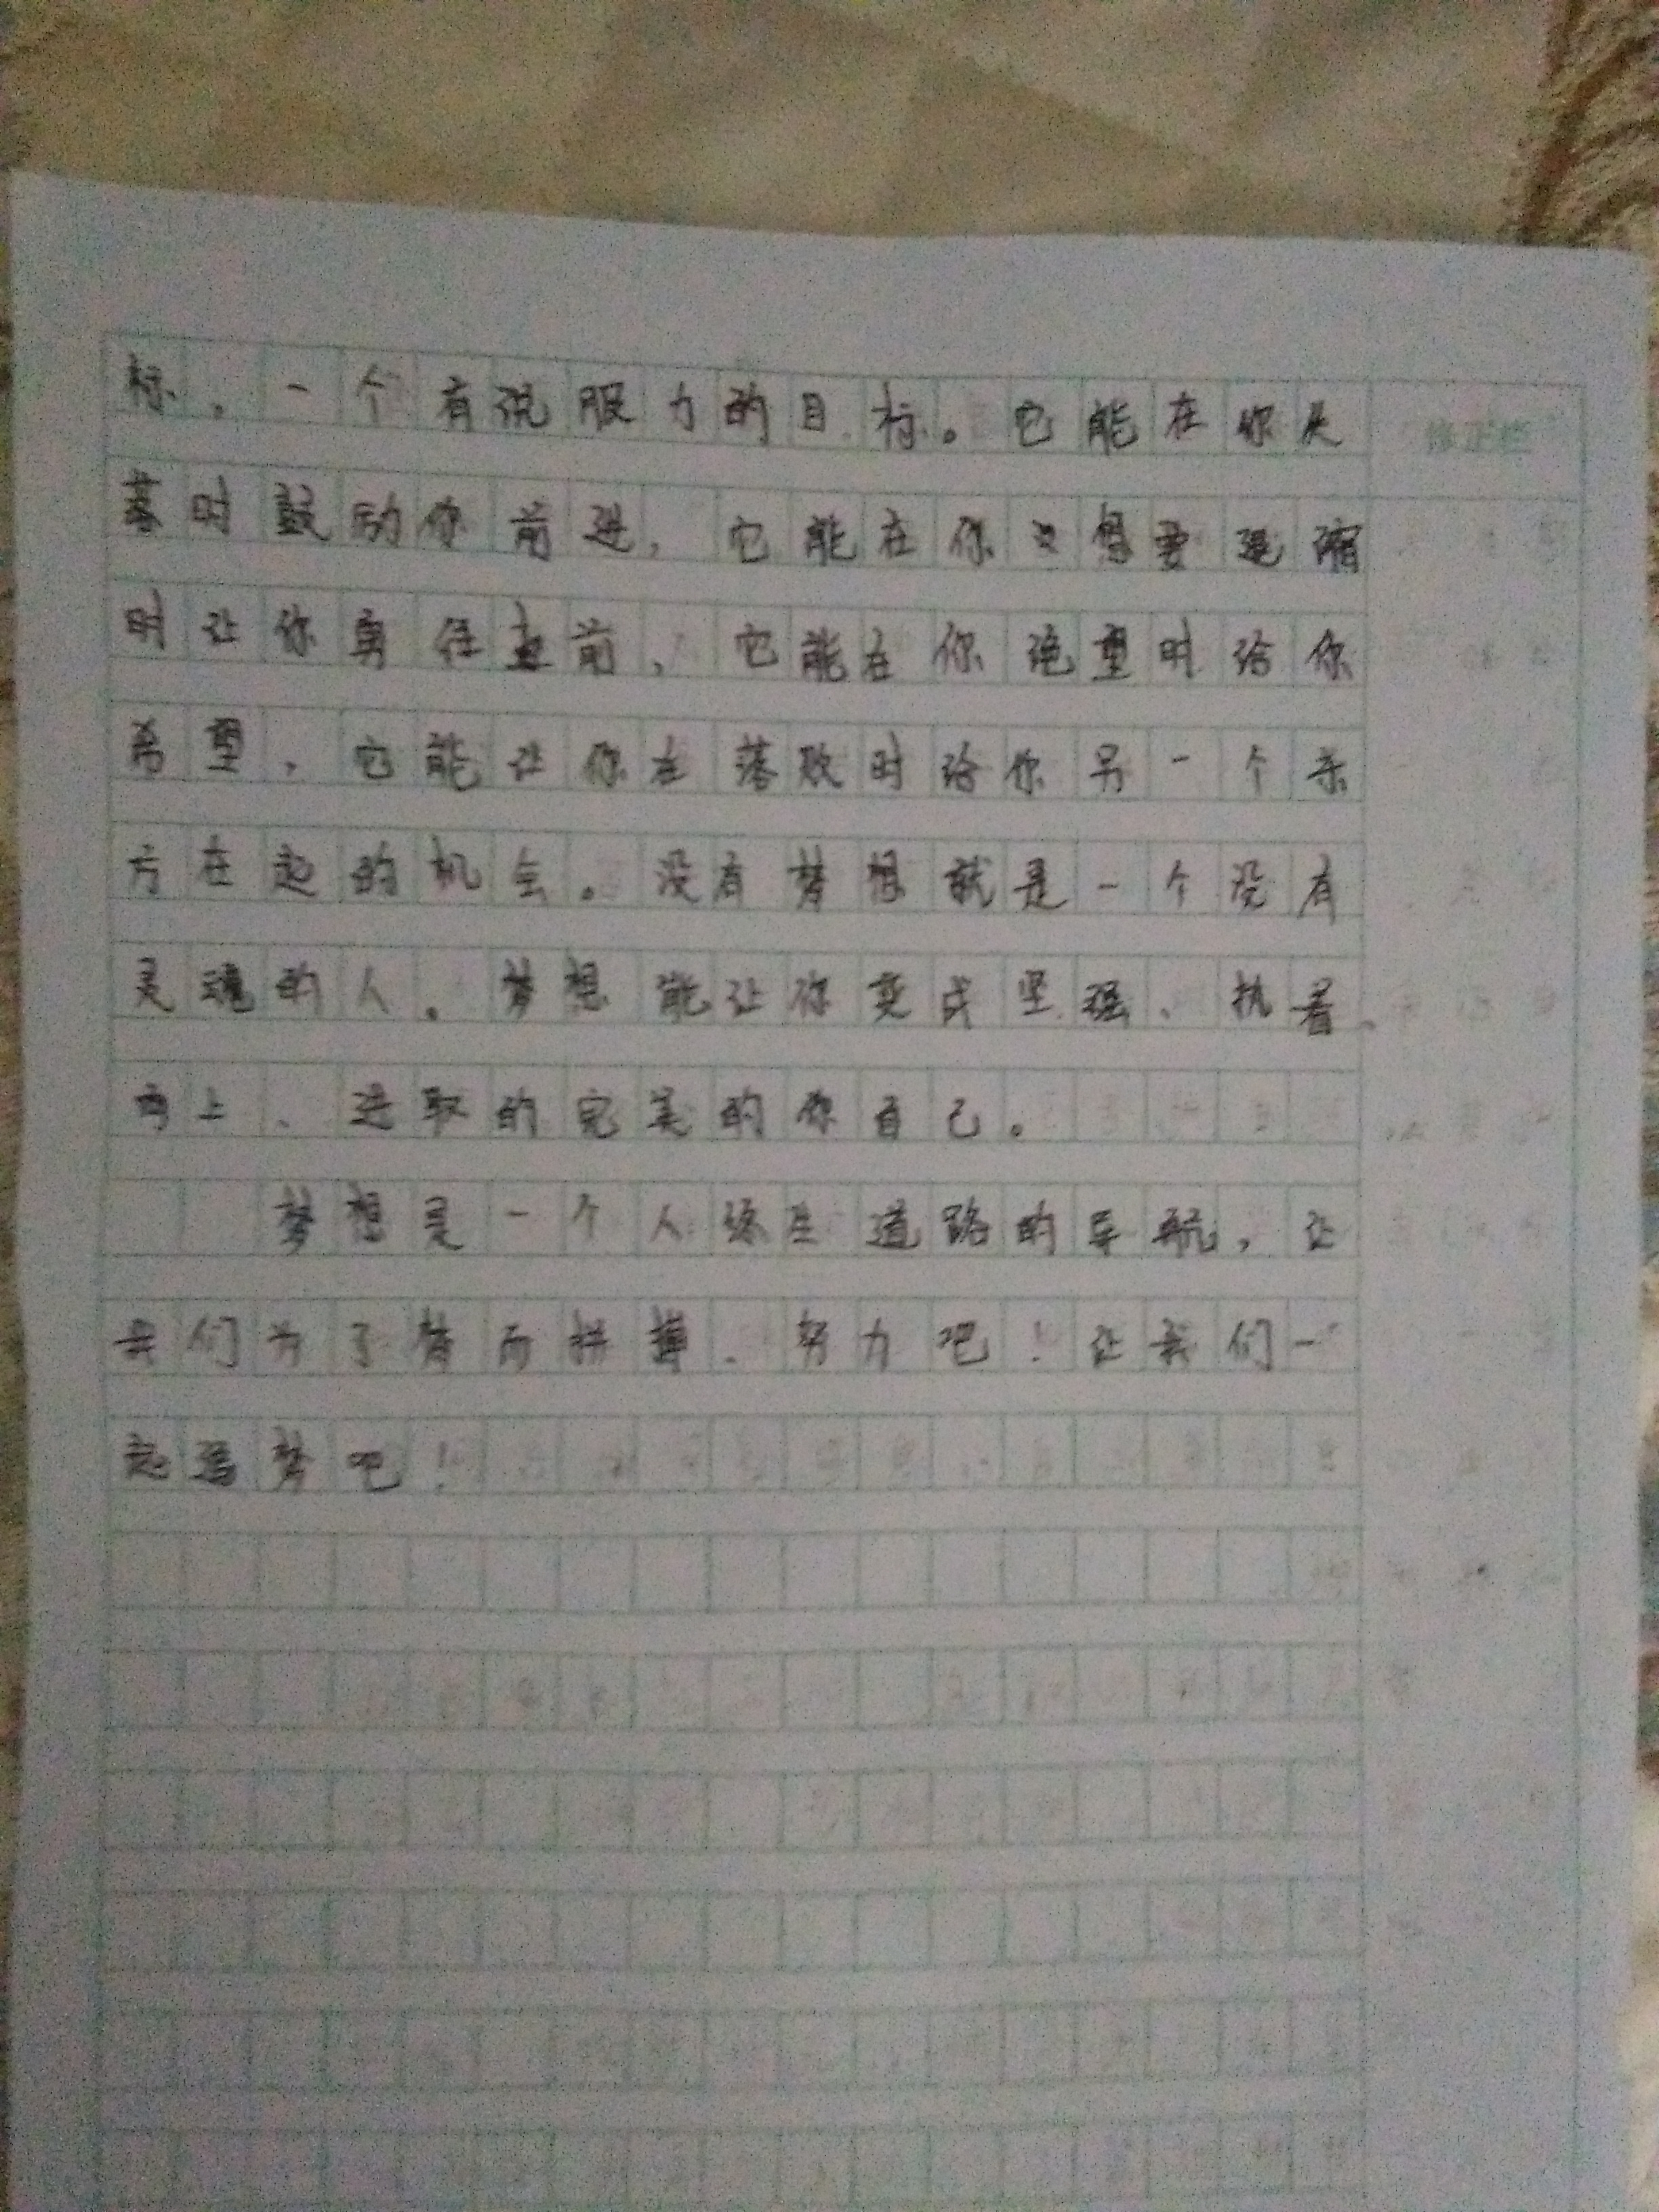 标，一个有说服力的目标。它能在你失
落时鼓励你前进，它能在你想要退缩
时让你勇往直前，它能在你绝望时给你
希望，它能让你在落败时给你另一个东
方在起的机会。没有梦想就是一个没有
灵魂的人。梦想能让你变成坚强、执着、
向上、进取的完美的你自己。
梦想是一个人终生道路的导航，让
我们为了梦而拼搏、努力吧！让我们一
起追梦吧！
修正栏